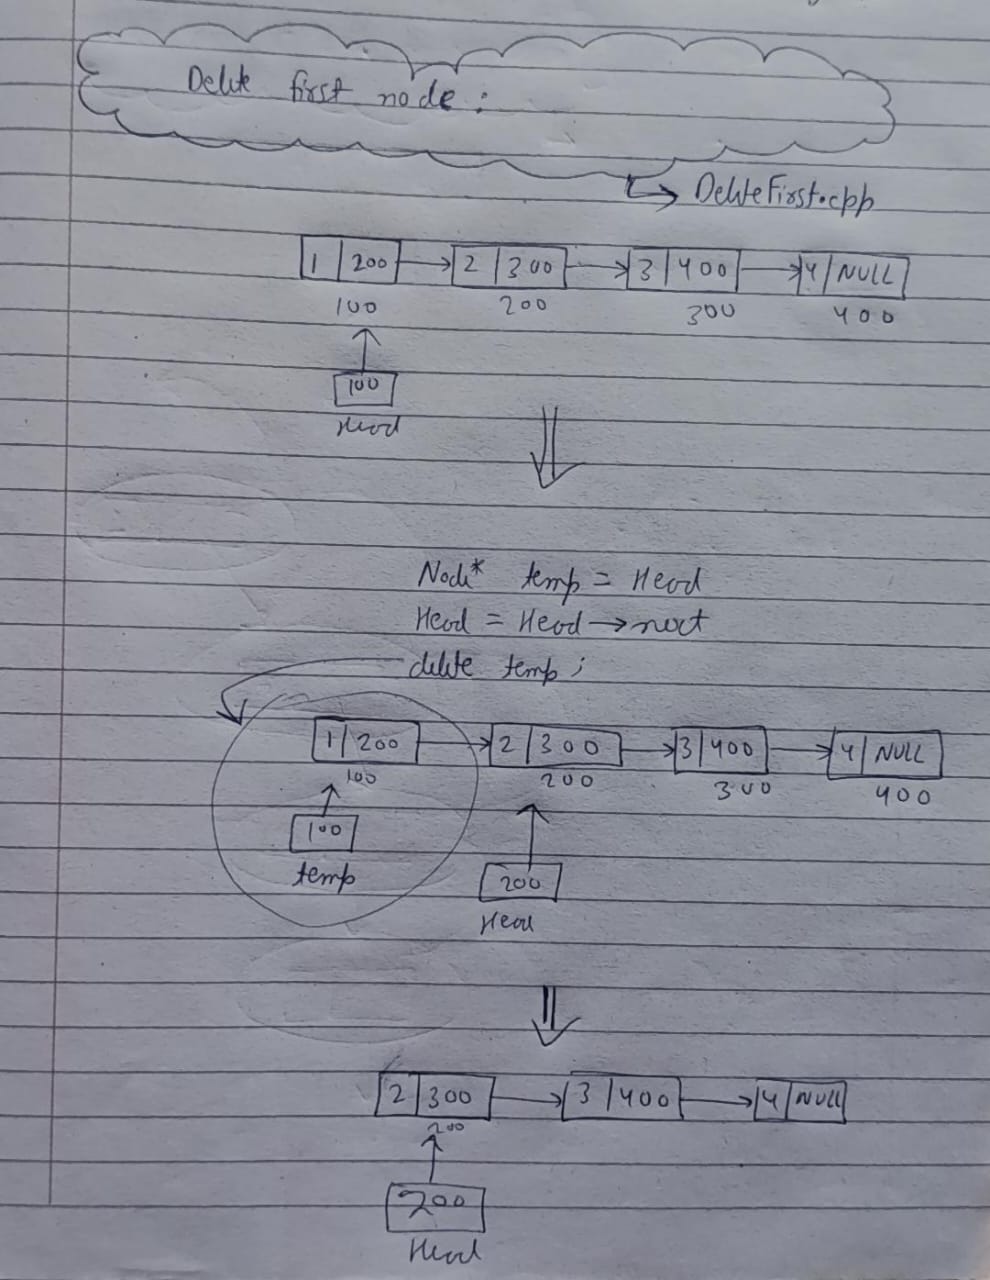 Delete first node :
DeleteFirst.cpp
1 | 200 → 2 | 300 → 3 | 400 → 4 | NULL
100 200 300 400
100
Head
Node* temp = Head
Head = Head → next
delete temp ;
1 | 200 → 2 | 300 → 3 | 400 → 4 | NULL
100 200 300 400
100
temp
200
Head
2 | 300 → 3 | 400 → 4 | NULL
200
200
Head